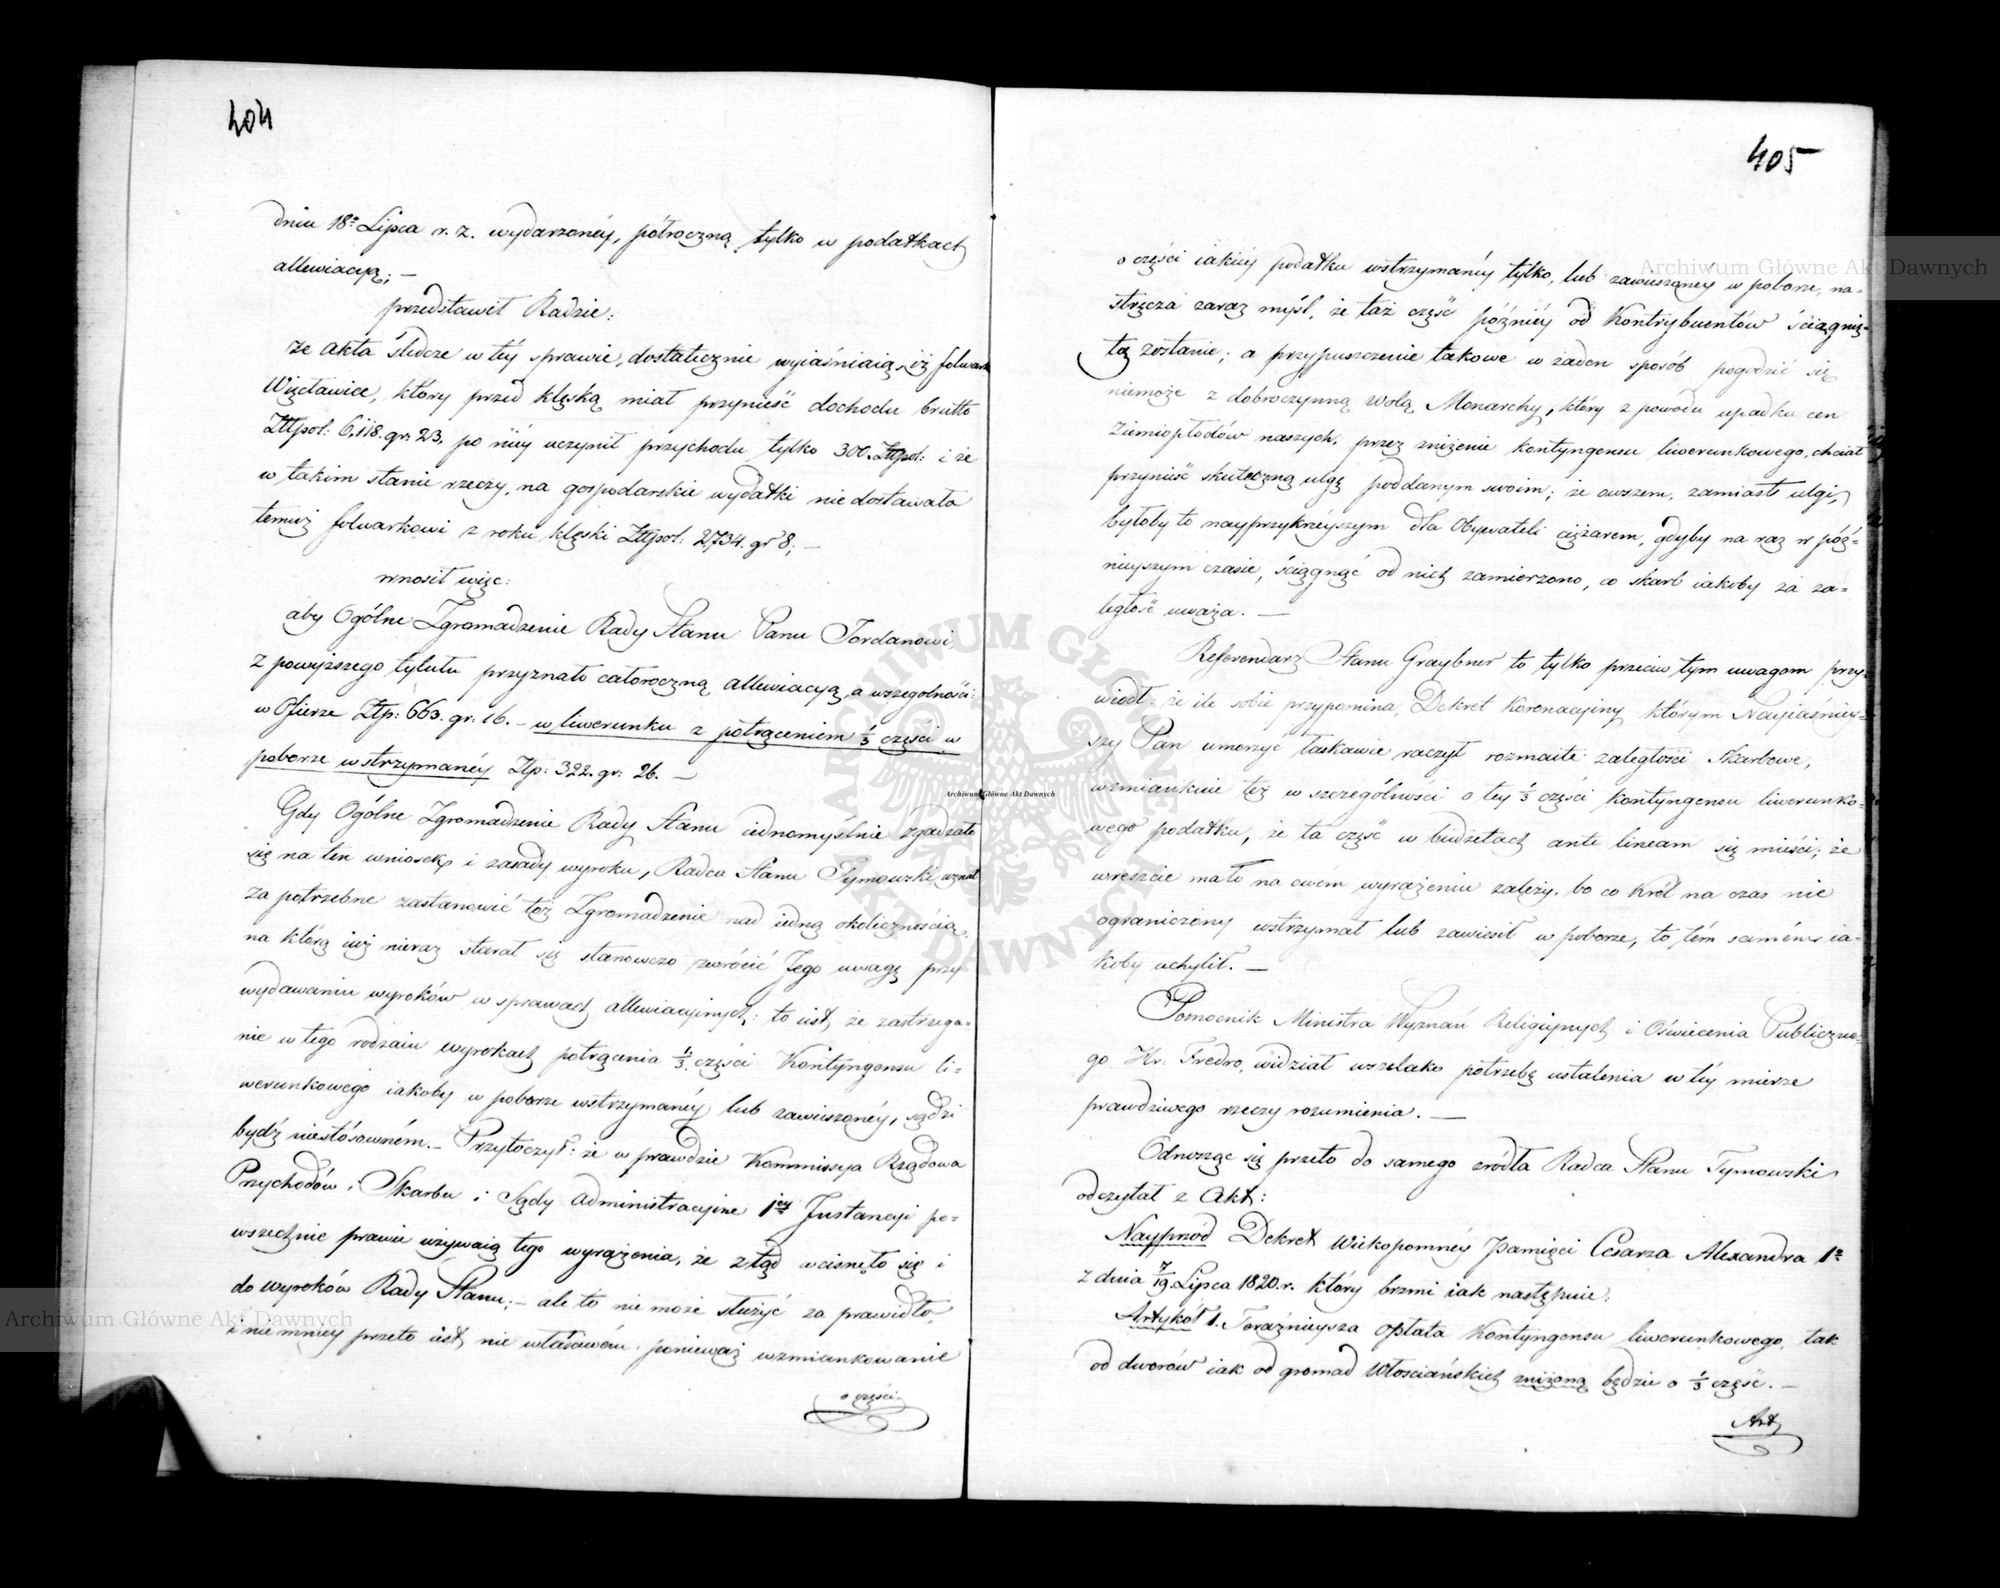 404
dniu 18º Lipca r. z. wydarzonéy, półroczną tylko w podatkach
allewiacyą; —
przedstawił Radzie:
że akta śledcze w téy sprawie, dostatecznie wyiaśniaią, iż folwark
Więcławice, który przed klęską miał przynieść dochodu brutto
Złłpol: 6,118. gr: 23. po niéy uczynił przychodu tylko 300. Złłpol: i że
w takim stanie rzeczy, na gospodarskie wydatki nie dostawało
temuż folwarkowi z roku klęski Złłpol: 2,734. gr 8; —
wnosił więc:
aby Ogólne Zgromadzenie Rady Stanu Panu Jordanowi
z powyższego tytułu przyznało całoroczną allewiacyą, a wszególności:
w Ofierze Złp: 663. gr: 16. — w liwerunku z potrąceniem ⅓ części w
poborze wstrzymanéy Złp: 322. gr: 26. —
Gdy Ogólne Zgromadzenie Rady Stanu iednomyślnie zgadzało
się na ten wniosek i zasady wyroku, Radca Stanu Tymowski uznał
za potrzebne zastanowić toż Zgromadzenie nad iedną okolicznością,
na którą iuż nieraz starał się stanowczo zwrócić Jego uwagę przy
wydawaniu wyroków w sprawach allewiacyinych: to iest, że zastrzega-
nie w tego rodzaiu wyrokach potrącenia ⅓ części Kontyngensu li-
werunkowego iakoby w poborze wstrzymanéy lub zawieszonéy, sądzi
bydź niestósowném. — Przytoczył: że w prawdzie Kommissya Rządowa
Przychodów i Skarbu i Sądy administracyine 1éy Instancyi po-
wszechnie prawie używaią tego wyrażenia, że ztąd wcisnęło się i
do wyroków Rady Stanu; — ale to nie może służyć za prawidło,
i nie mniey przeto iest nie właściwém, ponieważ wzmiankowanie
o części
405
o części iakiéy podatku wstrzymanéy tylko, lub zawieszonéy w poborze, na-
stręcza zaraz myśl, że taż część późniéy od Kontrybuentów ściągnię-
tą zostanie; a przypuszczenie takowe w żaden sposób pogodzić się
niemoże z dobroczynną wolą Monarchy, który z powodu upadku cen
ziemiopłodów naszych, przez zniżenie kontyngensu liwerunkowego, chciał
przynieść skuteczną ulgę poddanym swoim; że owszem, zamiast ulgi,
byłoby to nayprzykrzéyszym dla Obywateli ciężarem, gdyby na raz w póź-
nieyszym czasie, ściągnąć od nich zamierzono, co skarb iakoby za za-
ległość uważa. —
Referendarz Stanu Graybner to tylko przeciw tym uwagom przy-
wiódł: że ile sobie przypomina, Dekret Koronacyiny, którym Nayiaśniey-
szy Pan umorzyć łaskawie raczył rozmaite zaległości Skarbowe,
wzmiankuie też w szczególności o tey ⅓ części kontyngensu liwerunko-
wego podatku, że ta część w budżetach ante lineam się mieści; że
wreszcie mało na owém wyrażeniu zależy, bo co Król na czas nie
ograniczony wstrzymał lub zawiesił w poborze, to tém samém ia-
koby uchylił. —
Pomocnik Ministra Wyznań Religiynych i Oświecenia Publiczne-
go Hr: Fredro, widział wszelako potrzebę ustalenia w téy mierze
prawdziwego rzeczy rozumienia. —
Odnosząc się przeto do samego źródła Radca Stanu Tymowski
odczytał z Akt:
Nayprzód Dekret Wiekopomnéy Pamięci Cesarza Alexandra 1º
z dnia 7/19 Lipca 1820. r. który brzmi iak następuie:
Artykół 1. Teraźnieysza opłata Kontyngensu liwerunkowego, tak
od dworów iak od gromad Włościańskich zniżoną będzie o ⅓ część. —
Art
Archiwum Główne Akt Dawnych
Archiwum Główne Akt Dawnych
Archiwum Główne Akt Dawnych
ARCHIWUM GŁÓWNE AKT DAWNYCH